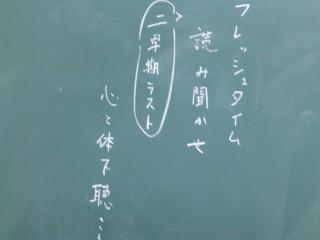 フレッシュタイム
読み聞かせ
二学期ラスト
心と体で聴こう